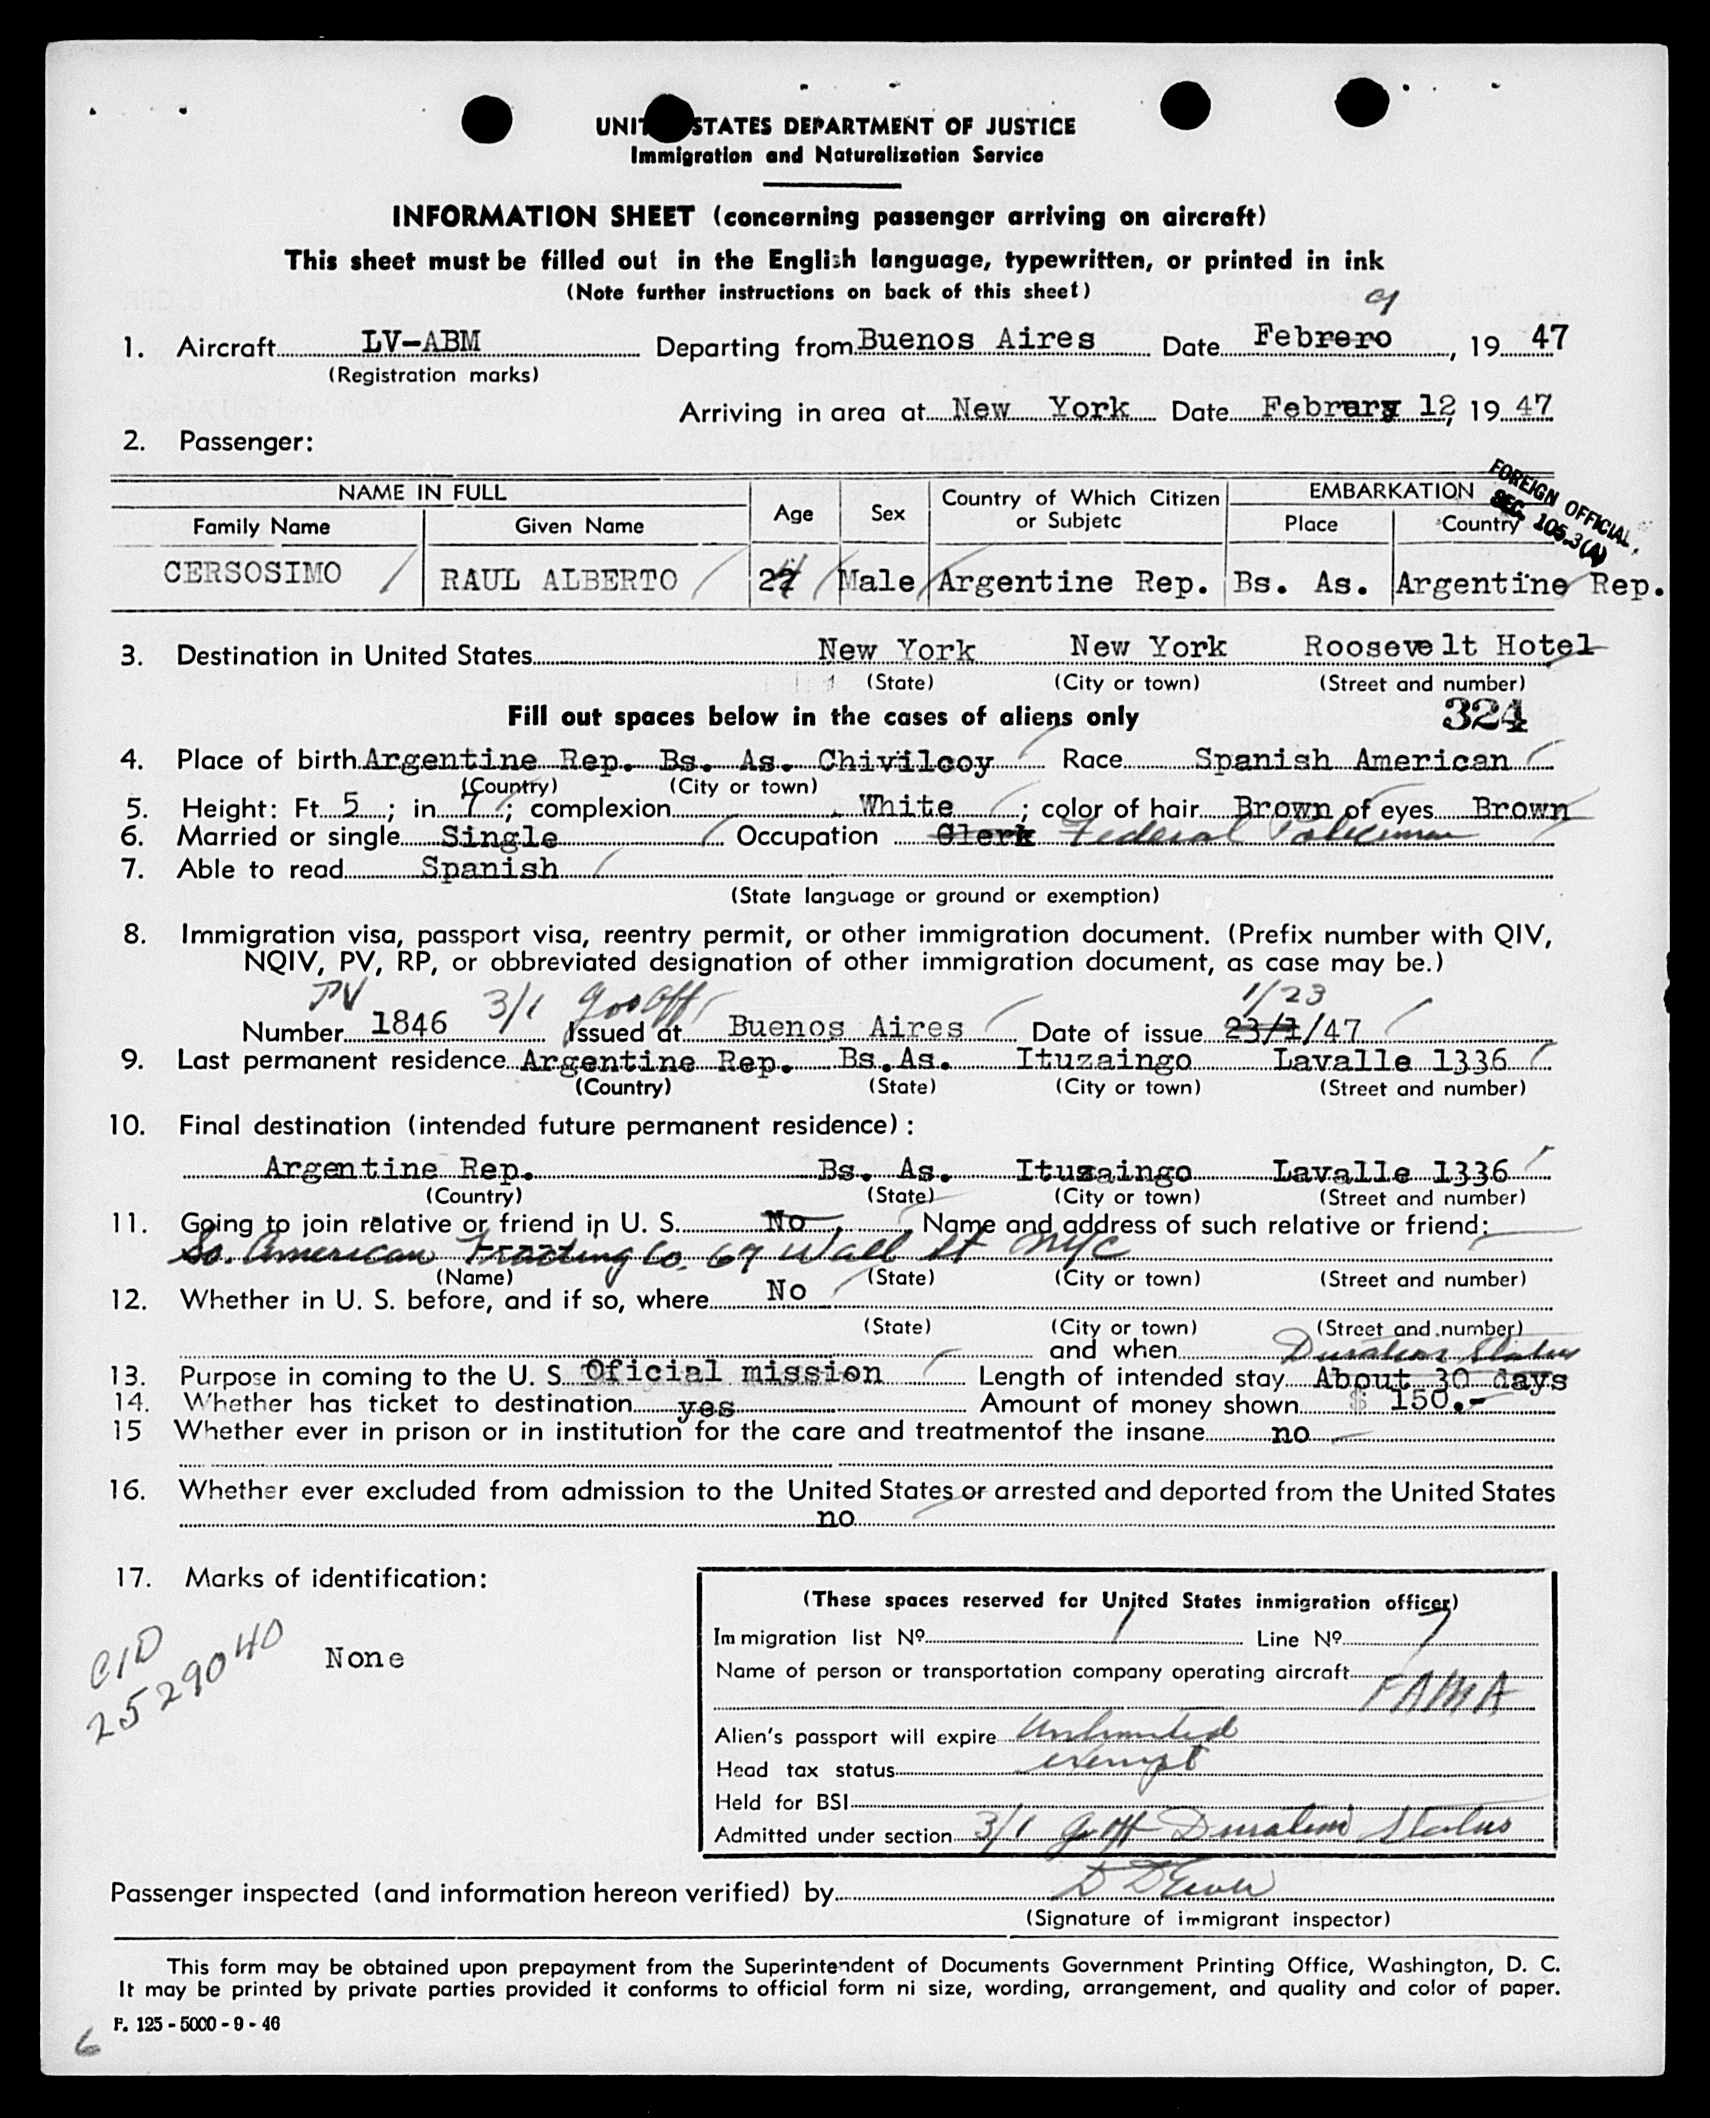 UNITED STATES DEPARTMENT OF JUSTICE
Immigration and Naturalization Service
INFORMATION SHEET (concerning passenger arriving on aircraft)
This sheet must be filled out in the English language, typewritten, or printed in ink
(Note further instructions on back of this sheet)
9
1. Aircraft LV-ABM Departing from Buenos Aires Date Febrero, 19 47
(Registration marks)
Arriving in area at New York Date Februrary 12, 19 47
2. Passenger:
FOREIGN OFFICIAL,
SEC. 105.3(A)
NAME IN FULL Age Sex Country of Which Citizen or Subjetc EMBARKATION
Family Name Given Name Place Country
CERSOSIMO RAUL ALBERTO 24 Male Argentine Rep. Bs. As. Argentine Rep.
3. Destination in United States New York New York Roosevelt Hotel
(State) (City or town) (Street and number)
Fill out spaces below in the cases of aliens only 324
4. Place of birth Argentine Rep. Bs. As. Chivilcoy Race Spanish American
(Country) (City or town)
5. Height: Ft. 5; in. 7; complexion White; color of hair Brown of eyes Brown
6. Married or single Single Occupation Clerk Federal Policeman
7. Able to read Spanish
(State language or ground or exemption)
8. Immigration visa, passport visa, reentry permit, or other immigration document. (Prefix number with QIV,
NQIV, PV, RP, or obbreviated designation of other immigration document, as case may be.)
PV 3/1 Gov Off 1/23
Number 1846 Issued at Buenos Aires Date of issue 23/1/47
9. Last permanent residence Argentine Rep. Bs.As. Ituzaingo Lavalle 1336
(Country) (State) (City or town) (Street and number)
10. Final destination (intended future permanent residence):
Argentine Rep. Bs. As. Ituzaingo Lavalle 1336
(Country) (State) (City or town) (Street and number)
11. Going to join relative or friend in U. S. No. Name and address of such relative or friend:
So. American Trading Co. 67 Wall St NYC
(Name) (State) (City or town) (Street and number)
12. Whether in U. S. before, and if so, where No
(State) (City or town) (Street and number)
and when Duration Status
13. Purpose in coming to the U. S. Oficial mission Length of intended stay About 30 days
14. Whether has ticket to destination yes Amount of money shown $ 150.-
15 Whether ever in prison or in institution for the care and treatmentof the insane no
16. Whether ever excluded from admission to the United States or arrested and deported from the United States
no
17. Marks of identification:
None
CID
2529040
(These spaces reserved for United States inmigration officer)
Immigration list Nº 1 Line Nº 7
Name of person or transportation company operating aircraft
FAMA
Alien's passport will expire Unlimited
Head tax status exempt
Held for BSI
Admitted under section 3/1 G Off Duration Status
Passenger inspected (and information hereon verified) by
(Signature of immigrant inspector)
This form may be obtained upon prepayment from the Superintendent of Documents Government Printing Office, Washington, D. C.
It may be printed by private parties provided it conforms to official form ni size, wording, arrangement, and quality and color of paper.
F. 125 - 5000 - 9 - 46
6